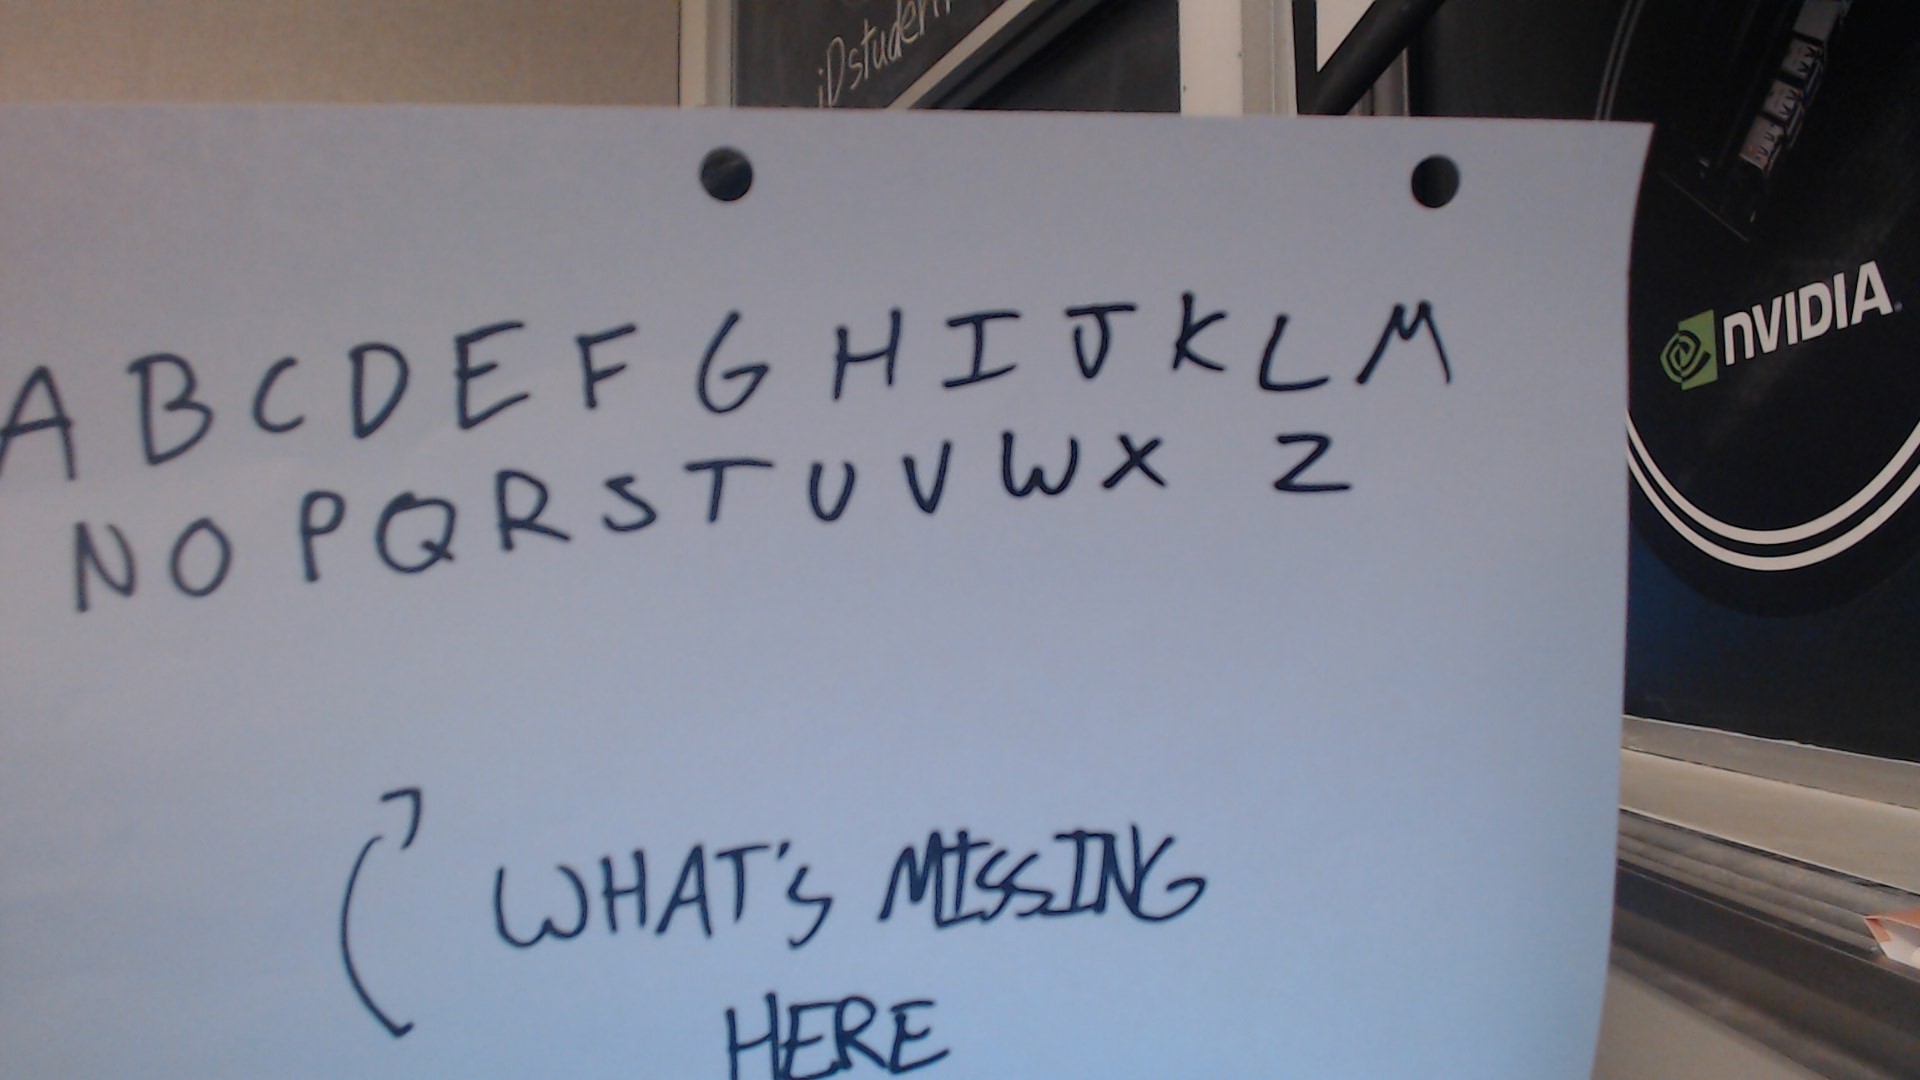 iDstuden
A B C D E F G H I J K L M
N O P Q R S T U V W X Z
WHAT'S MISSING
HERE
nVIDIA